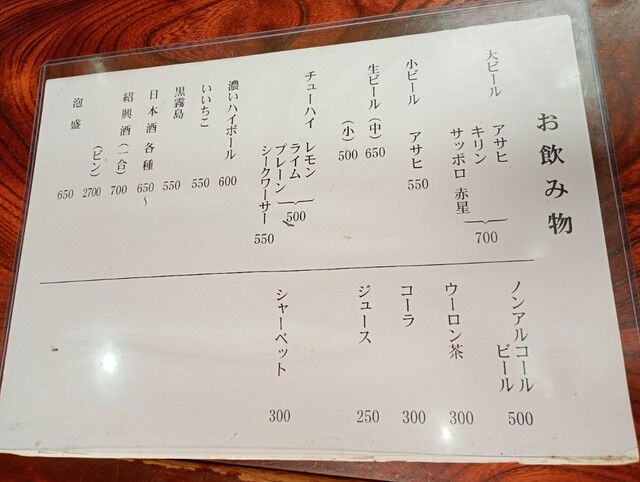 お飲み物
大ビール アサヒ
キリン
サッポロ 赤星
700
小ビール アサヒ 550
生ビール (中) 650
(小) 500
チューハイ レモン
ライム
プレーン
500
シークワーサー 550
濃いハイボール 600
いいちこ 550
黒霧島 550
日本酒 各種 650~
紹興酒 (一合) 700
(ビン) 2700
泡盛 650
ノンアルコール
ビール 500
ウーロン茶 300
コーラ 300
ジュース 250
シャーベット 300